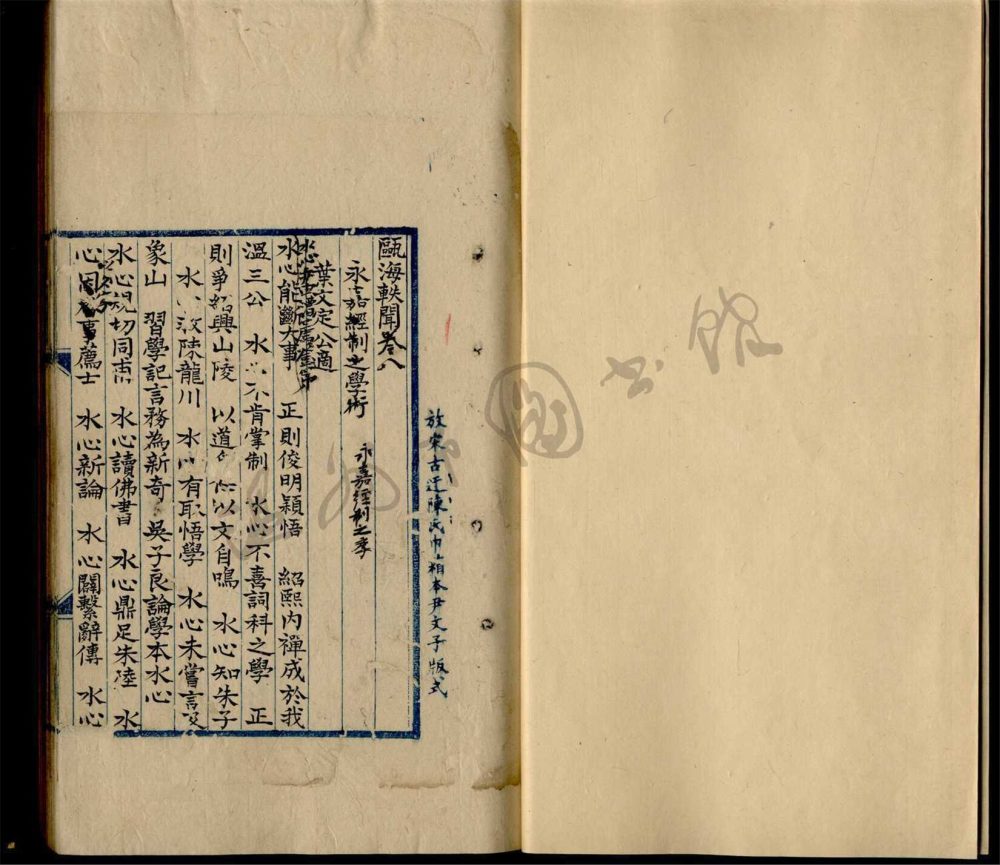 放宋古迂陳氏巾箱本尹文子版式
甌海軼聞卷八
永嘉經制之學術 永嘉經制之學
葉文定公適
水心能斷大事 正則俊明穎悟 紹熙內禪成於我
溫三公 水心不肯掌制 水心不喜詞科之學 正
則爭紹興山陵 以道 以文自鳴 水心知朱子
水心 陳龍川 水心有取悟學 水心未嘗言
象山 習學記言務為新奇 吳子良論學本水心
水心規切同 水心讀佛書 水心鼎足朱陸 水
心因 事薦士 水心新論 水心闢繫辭傳 水心